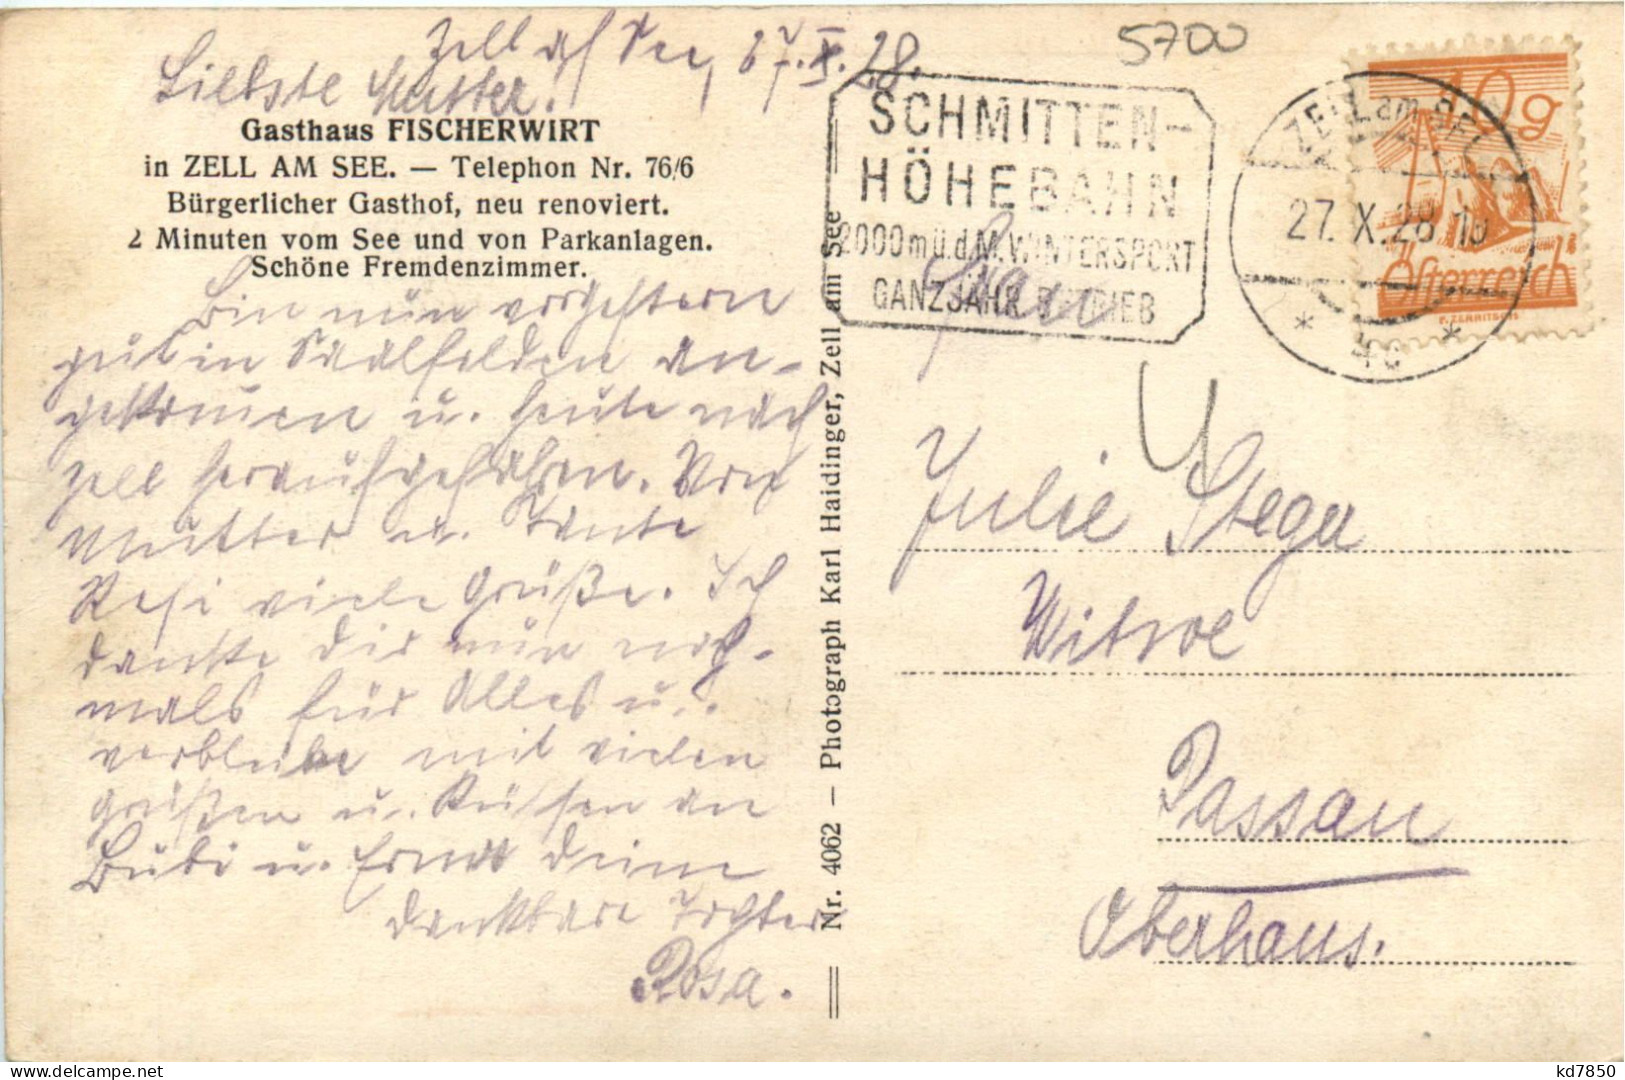 Zell a/ See, 27.X.28.
Liebste Mutter!
Gasthaus FISCHERWIRT
in ZELL AM SEE. — Telephon Nr. 76/6
Bürgerlicher Gasthof, neu renoviert.
2 Minuten vom See und von Parkanlagen.
Schöne Fremdenzimmer.
Bin nun vorgestern
gut in Saalfelden an-
gekommen u. heute nach
Zell heraufgefahren. Von
Mutter u. Tante
Resi viele Grüße. Ich
danke Dir nun noch-
mals für Alles u.
verbleibe mit vielen
Grüßen u. Küssen an
Bubi u. Ernst Deine
dankbare Tochter
Rosa.
Nr. 4062 — Photograph Karl Haidinger, Zell am See
5700
SCHMITTEN-
HÖHEBAHN
2000 m ü.d.M. WINTERSPORT
GANZJÄHR. BETRIEB
ZELL am SEE
27. X. 28
10g
Österreich
Frau
Julie Stega
Witwe
Passau
Oberhaus.
kd7850